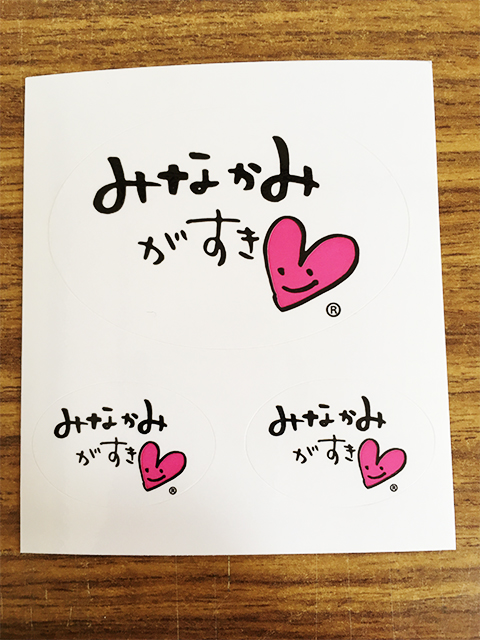 みなかみ
がすき
®
みなかみ
がすき
®
みなかみ
がすき
®